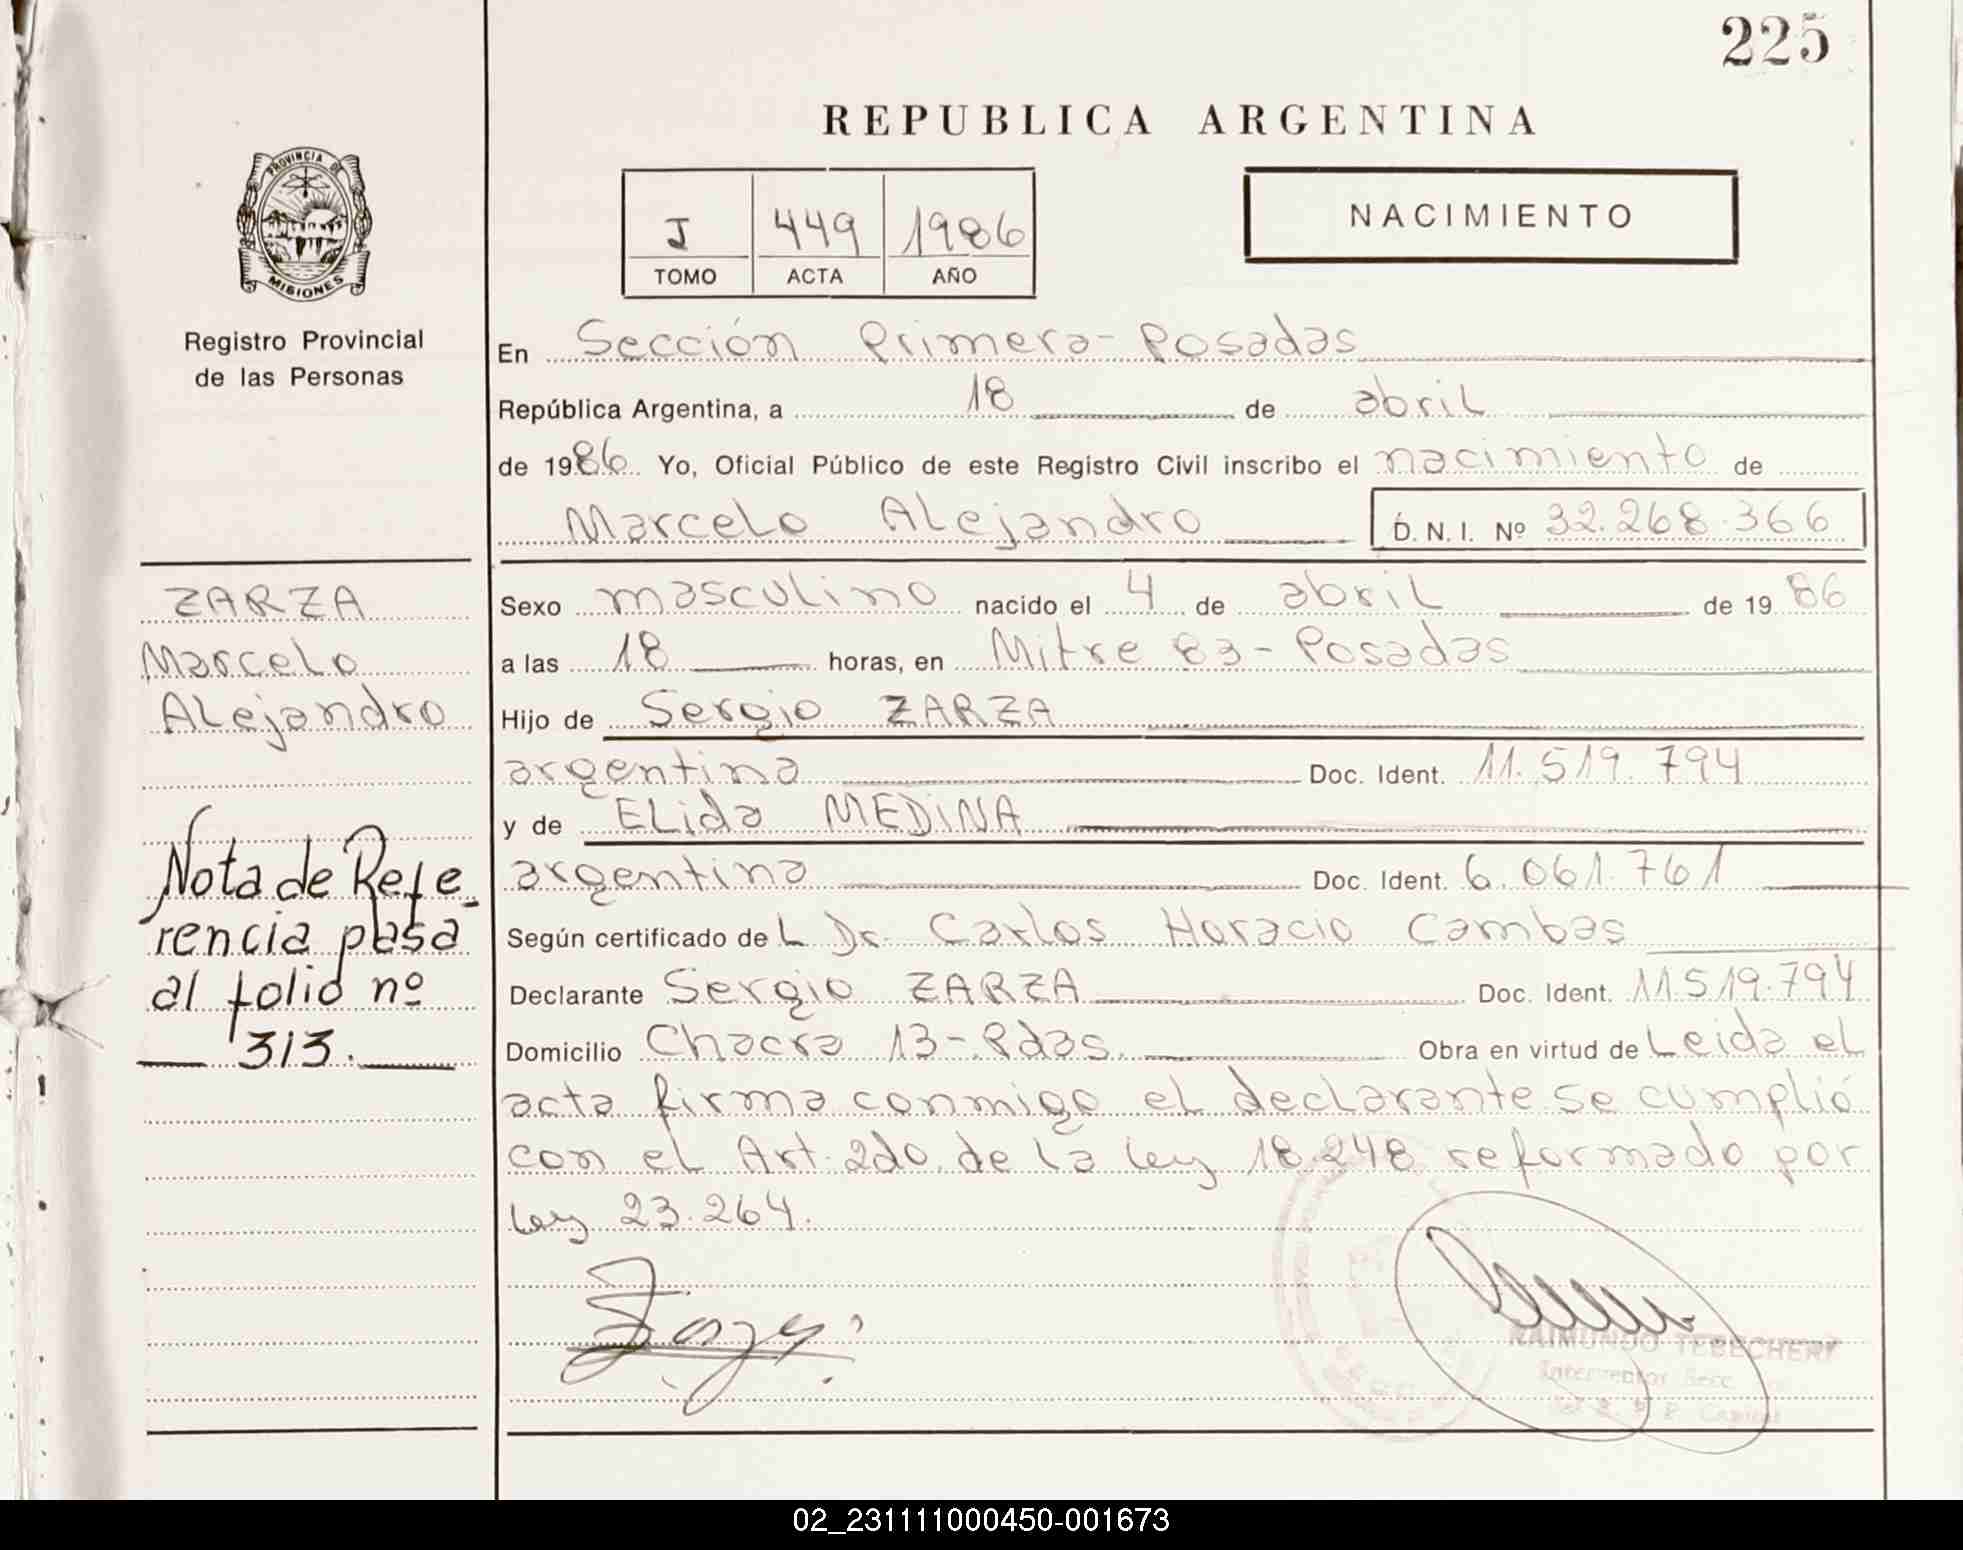 225
REPUBLICA ARGENTINA
PROVINCIA DE
MISIONES
Registro Provincial
de las Personas
J 449 1986
TOMO ACTA AÑO
NACIMIENTO
En Sección Primera- Posadas
República Argentina, a 18 de abril
de 1986 Yo, Oficial Público de este Registro Civil inscribo el nacimiento de
Marcelo Alejandro D. N. I. Nº 32.268.366
ZARZA
Marcelo
Alejandro
Nota de Refe-
rencia pasa
al folio nº
313.
Sexo masculino nacido el 4 de abril de 1986
a las 18 horas, en Mitre 83- Posadas
Hijo de Sergio ZARZA
argentina Doc. Ident. 11.519.794
y de ELida MEDINA
argentina Doc. Ident. 6.061.761
Según certificado deL Dr. Carlos Horacio Cambas
Declarante Sergio ZARZA Doc. Ident. 11.519.794
Domicilio Chacra 13-Pdas. Obra en virtud de Leida el
acta firma conmigo el declarante se cumplió
con el Art. 2do. de la ley 18.248 reformado por
ley 23.264.
RAIMUNDO TEBECHERY
02_231111000450-001673